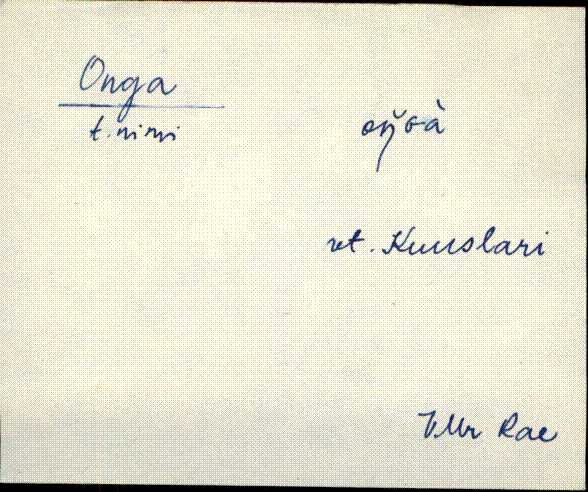 Onga
t. nimi
oŋ̆ɢà
vt. Kuuslari
V.Mr Rae